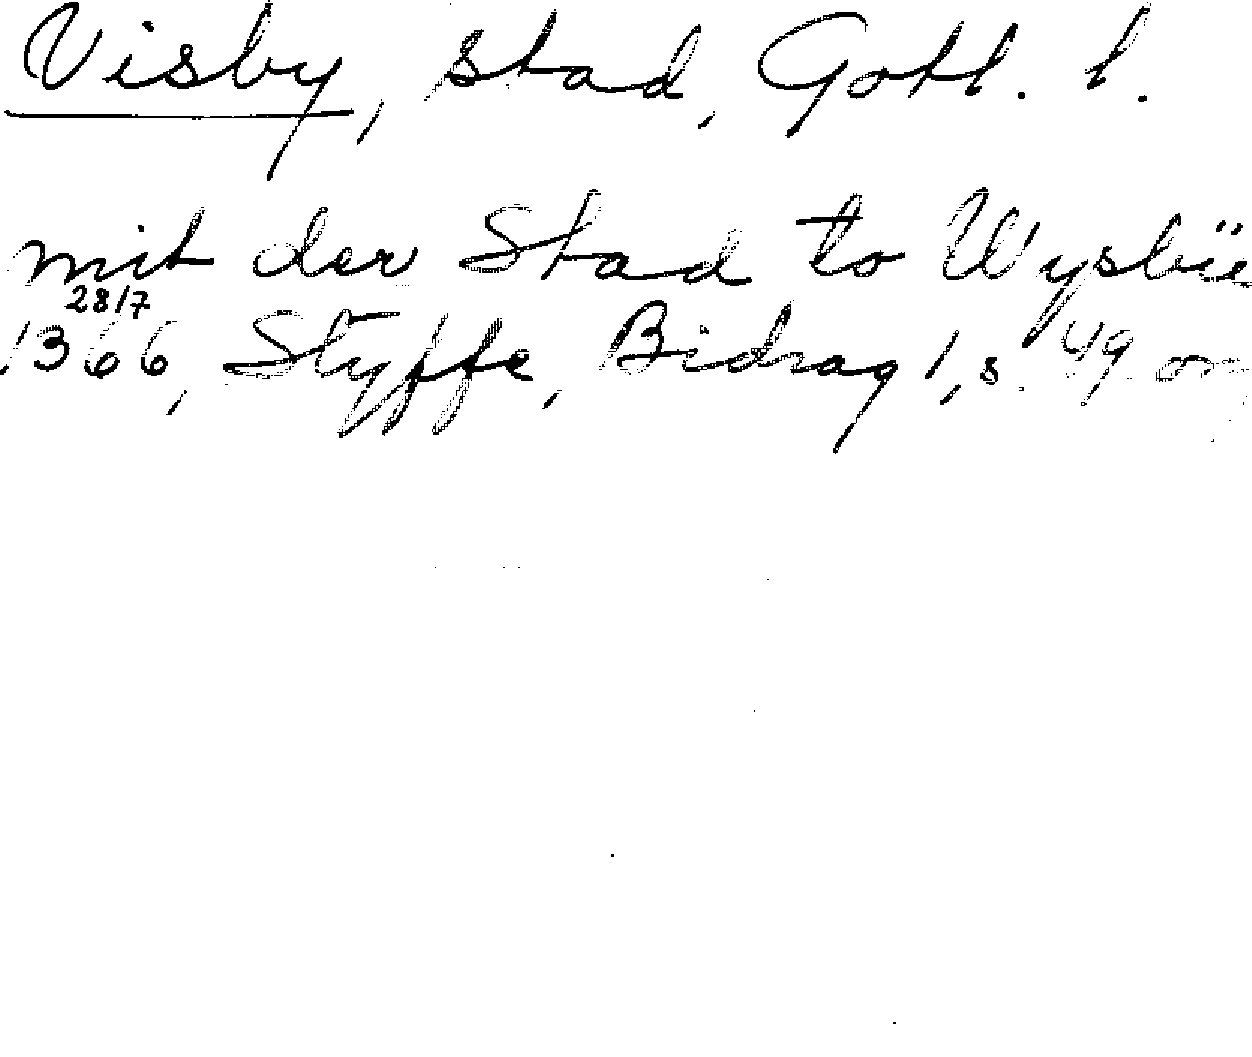 Visby, stad, Gotl. l.
mit der Stad to Wysbüe
28/7
1366, Styffe, Bidrag 1, s. 49 or